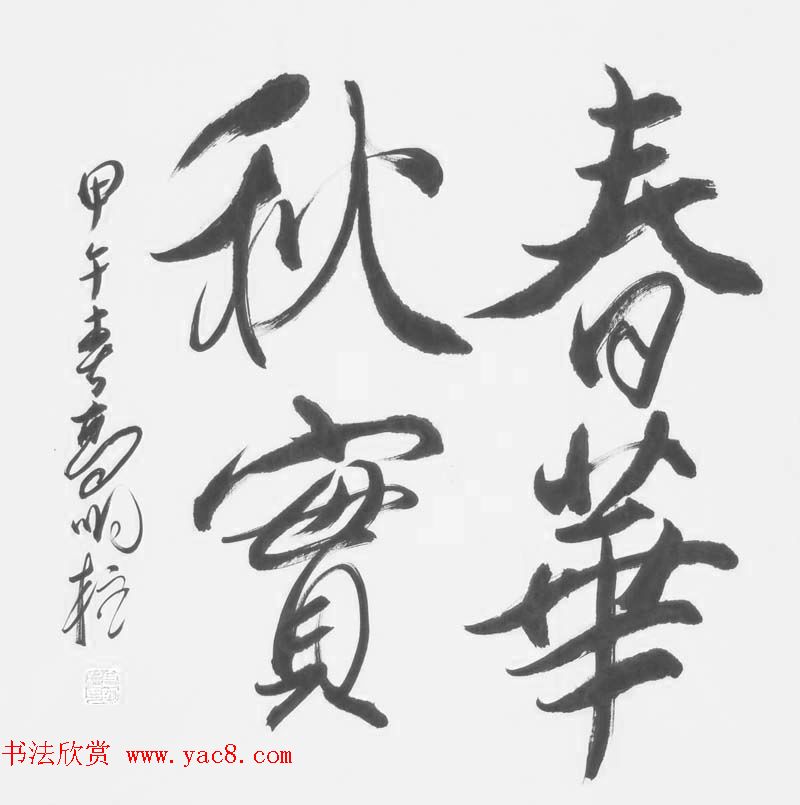 春華
秋實
甲午春高明柱
书法欣赏 www.yac8.com